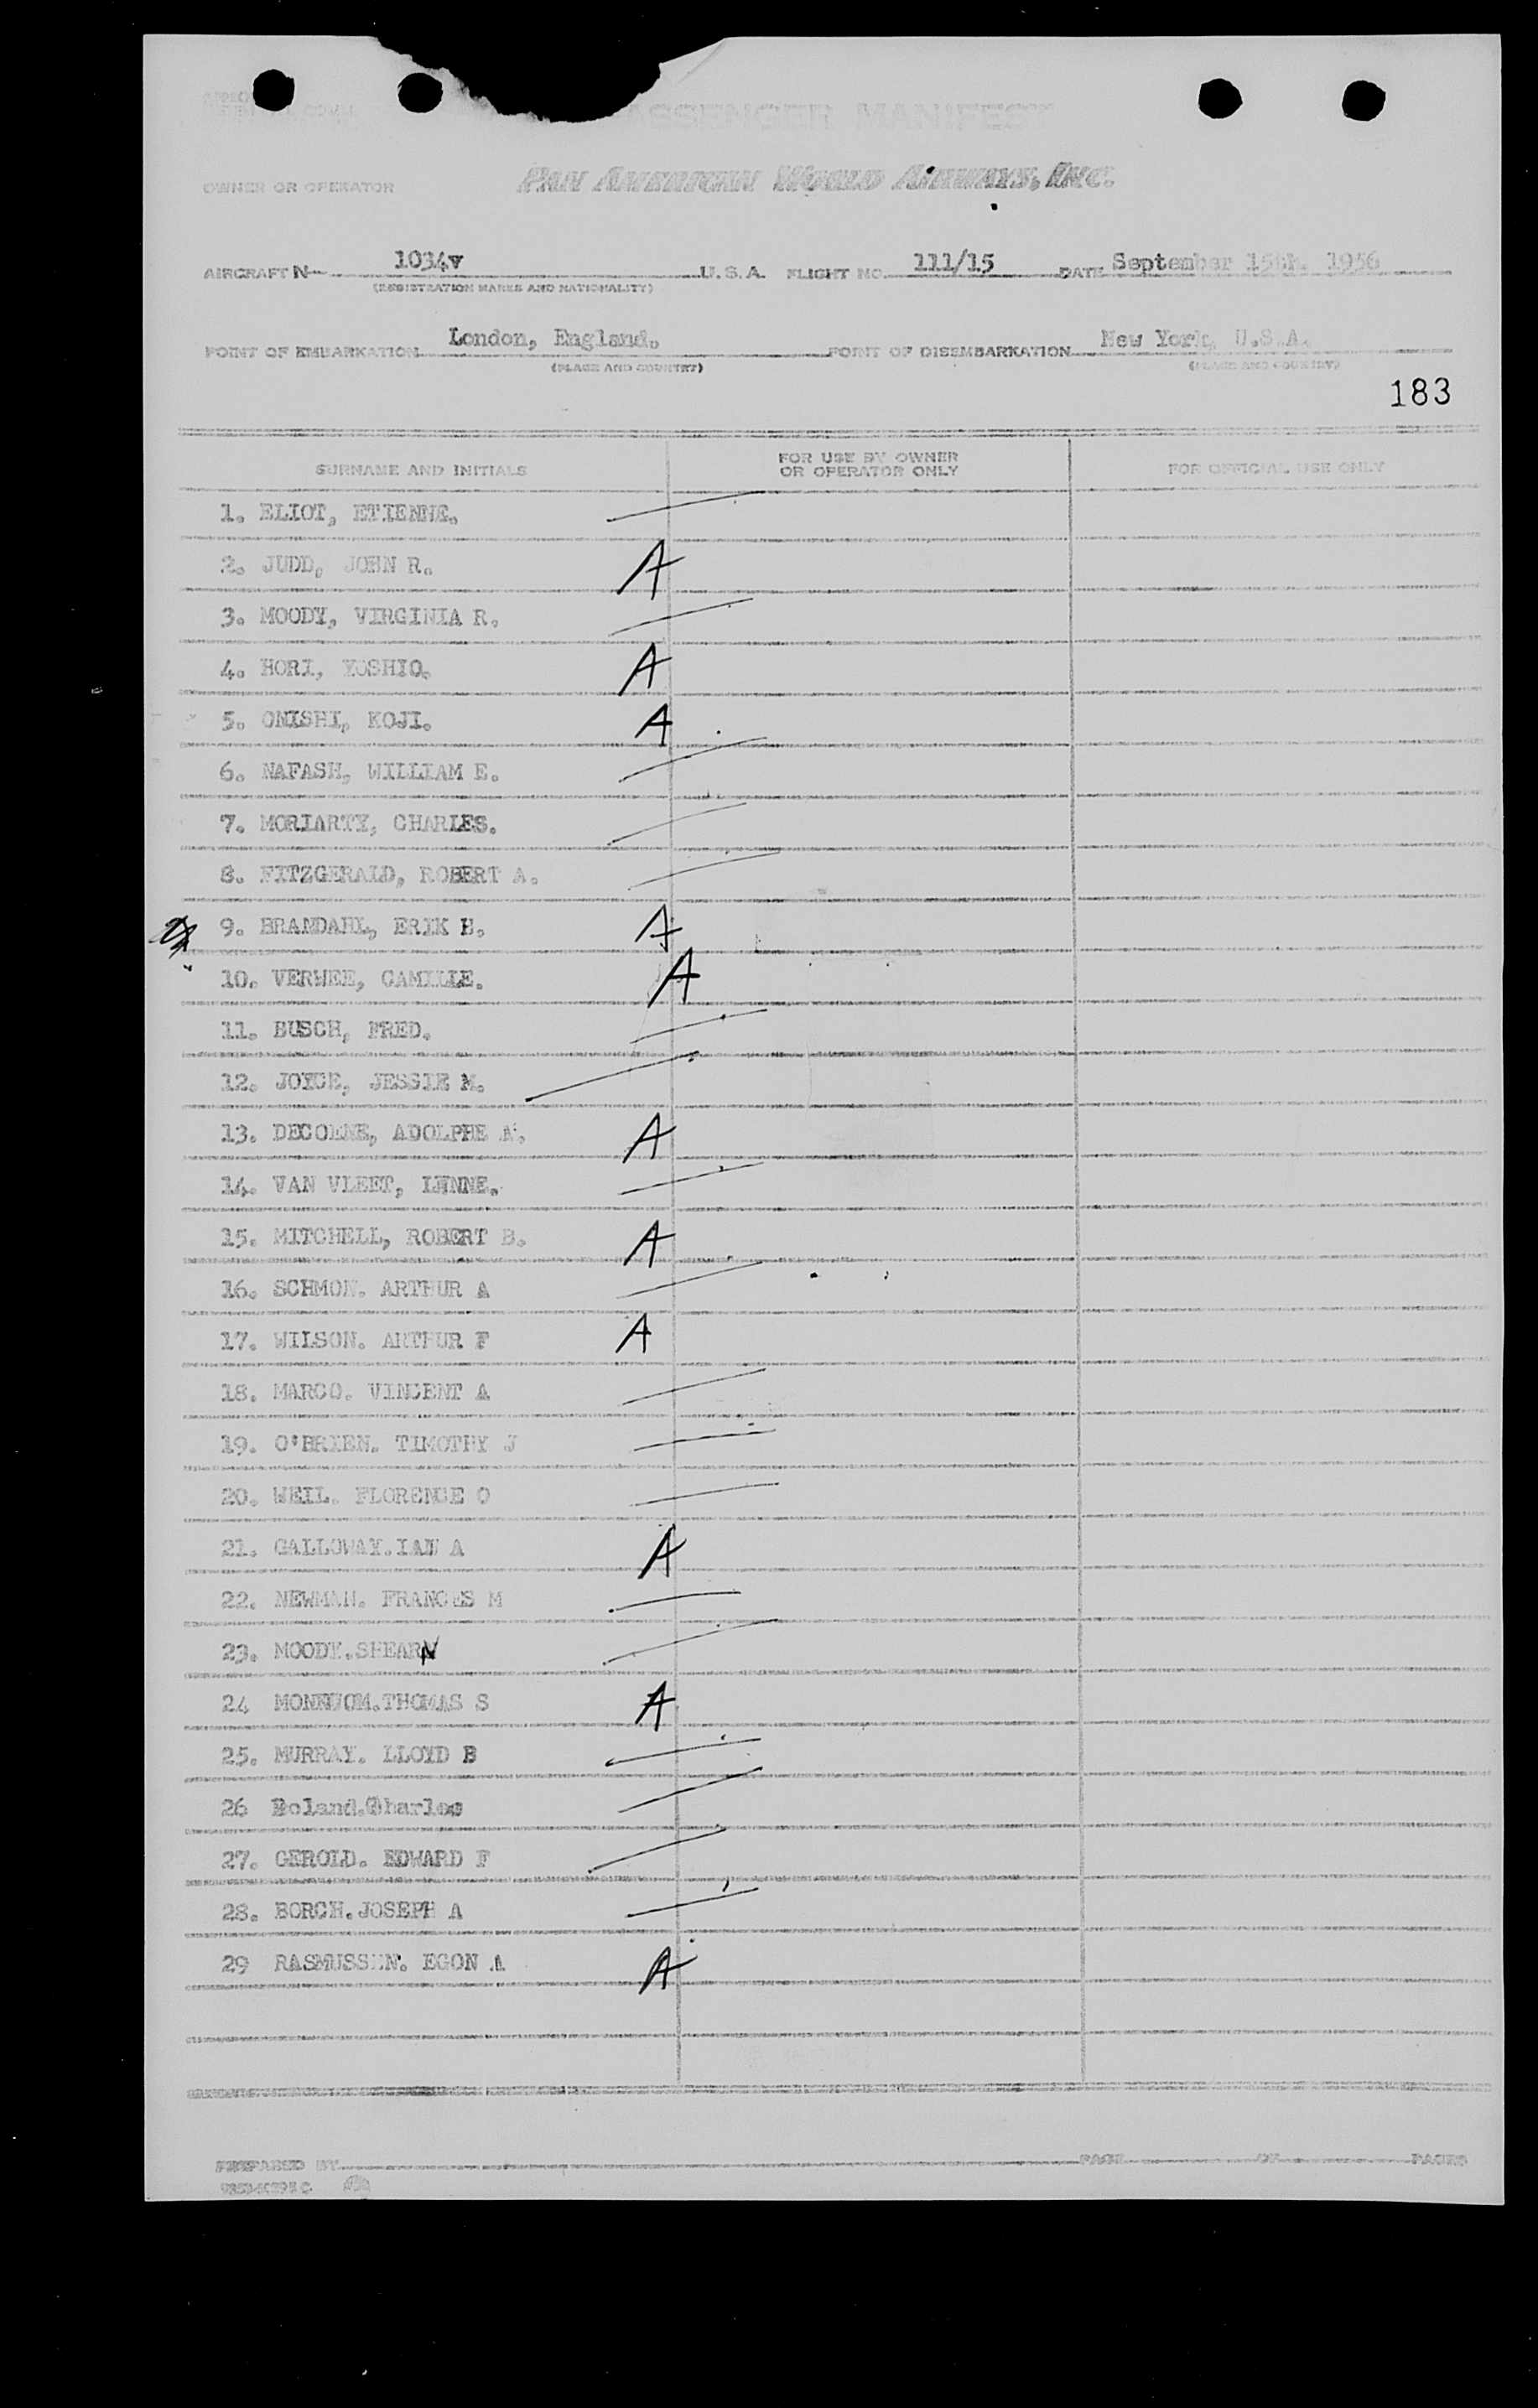 SSENGER MANIFEST
OWNER OR OPERATOR PAN AMERICAN WORLD AIRWAYS, INC.
AIRCRAFT N 1034v U.S.A. FLIGHT NO. 111/15 DATE September 15th. 1956
(REGISTRATION MARKS AND NATIONALITY)
POINT OF EMBARKATION London, England. POINT OF DISEMBARKATION New York, U.S.A.
(PLACE AND COUNTRY) (PLACE AND COUNTRY)
183
SURNAME AND INITIALS FOR USE BY OWNER OR OPERATOR ONLY FOR OFFICIAL USE ONLY
1. ELIOT, ETIENNE.
2. JUDD, JOHN R. A
3. MOODY, VIRGINIA R.
4. HORI, YOSHIO. A
5. ONISHI, KOJI. A
6. NAFASH, WILLIAM E.
7. MORIARTY, CHARLES.
8. FITZGERALD, ROBERT A.
9. BRANDAHL, ERIK H. A
10. VERWEE, CAMILLE. A
11. BUSCH, FRED.
12. JOYCE, JESSIE M.
13. DECOENE, ADOLPHE A
14. VAN VLEET, LYNNE.
15. MITCHELL, ROBERT B. A
16. SCHMON. ARTHUR A
17. WILSON. ARTHUR F A
18. MARCO. VINCENT A
19. O'BRIEN. TIMOTHY J
20. WEIL. FLORENCE O
21. GALLOWAY.IAN A A
22. NEWMAN. FRANCES M
23. MOODY.SHEARN
24 THOMAS S A
25. MURRAY. LLOYD B
26 Boland.Charles
27. GEROLD. EDWARD F
28. BORCH.JOSEPH A
29 RASMUSSEN. EGON A A
PREPARED BY PAGE OF PAGES